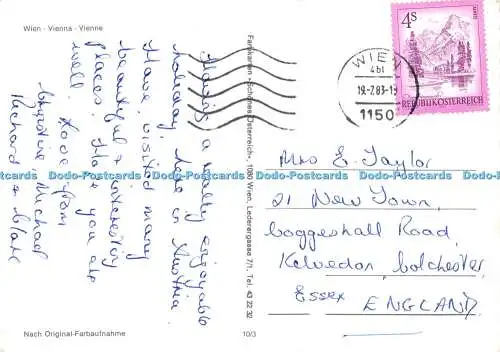 Wien - Vienna - Vienne
Having a really enjoyable
holiday here in Austria.
Have visited many
beautiful & interesting
places. Hope you are
well. Love from
Michael
Richard & Clare
Nach Original-Farbaufnahme
10/3
Farbkarten »Schönes Österreich«, 1080 Wien, Lederergasse 7/1. Tel. 43 22 32
WIEN
1150
4S
REPUBLIK ÖSTERREICH
Mrs E. Taylor
21 New Town,
Coggeshall Road,
Kelvedon Colchester,
Essex ENGLAND
Dodo-Postcards Dodo-Postcards Dodo-Postcards Dodo-Postcards